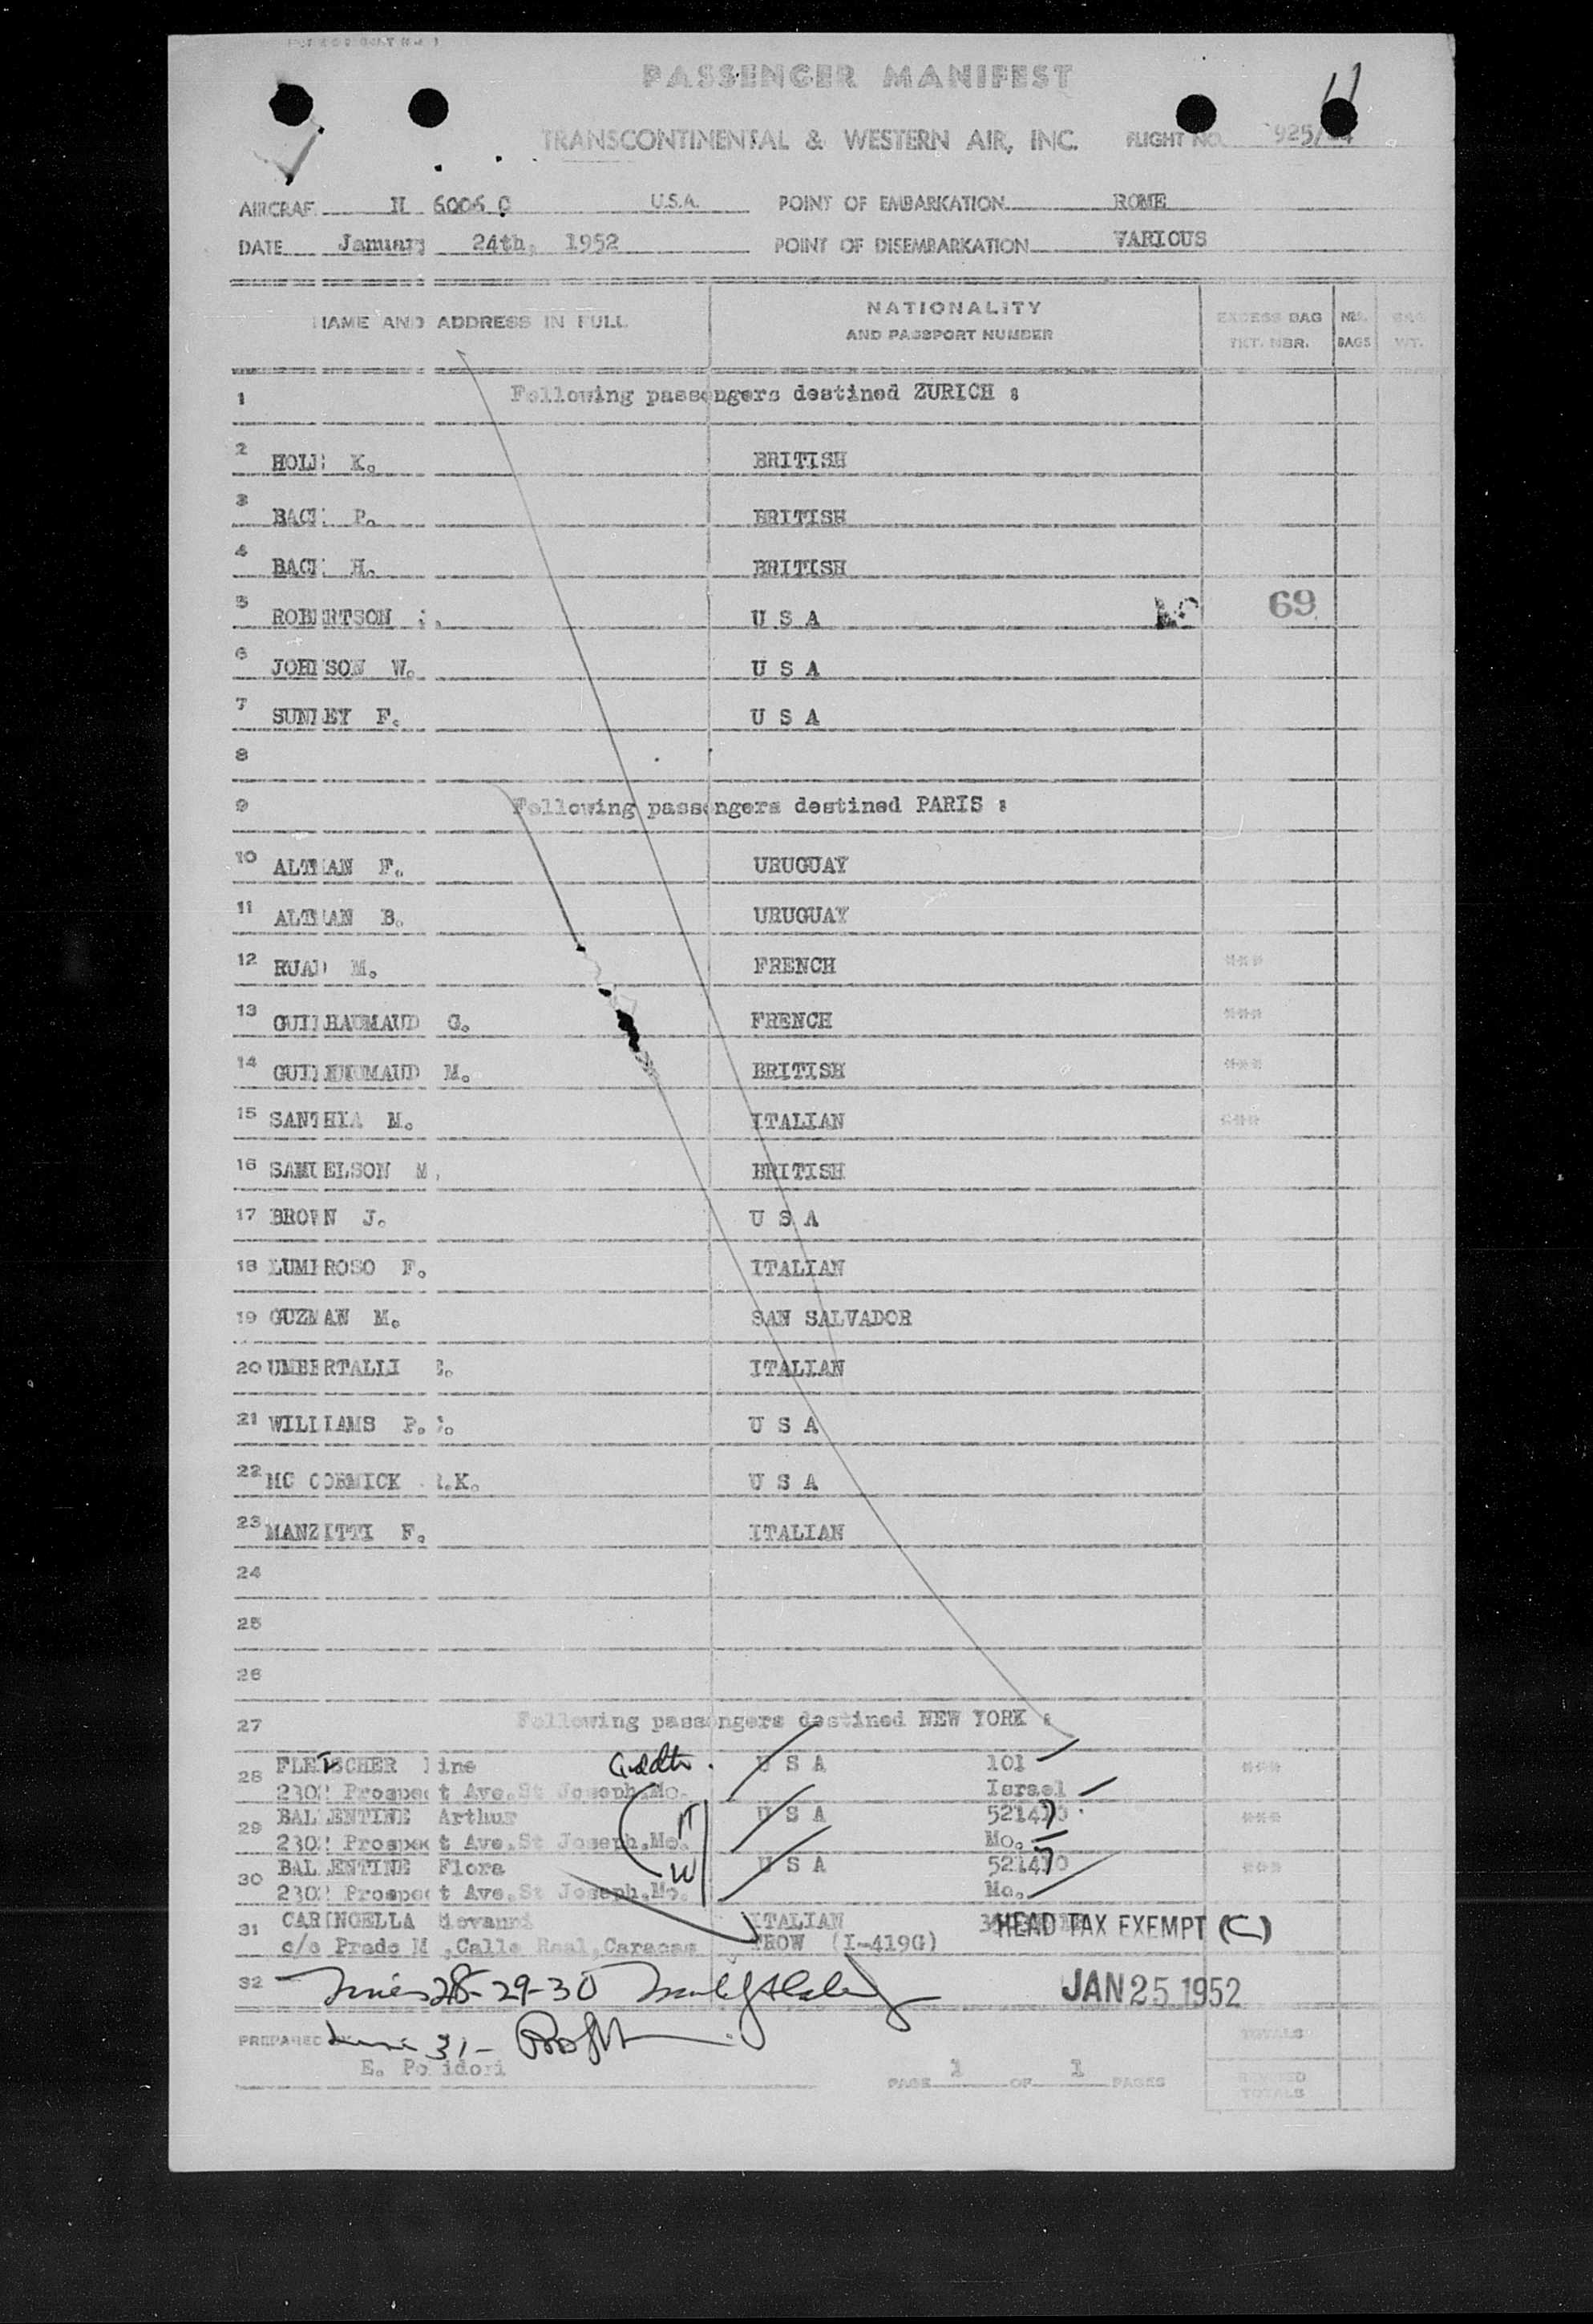 PASSENGER MANIFEST
TRANSCONTINENTAL & WESTERN AIR, INC. FLIGHT NO. 925/
AIRCRAF N 6006 C U.S.A. POINT OF EMBARKATION ROME
DATE January 24th, 1952 POINT OF DISEMBARKATION VARIOUS
NAME AND ADDRESS IN FULL NATIONALITY AND PASSPORT NUMBER EXCESS BAG TKT. NBR. NBR. BAGS BAG WT.
1 Following passengers destined ZURICH :
2 K. BRITISH
3 P. BRITISH
4 H. BRITISH
5 ROBERTSON U S A 69
6 JOHNSON W. U S A
7 F. U S A
8
9 Following passengers destined PARIS :
10 ALTMAN F. URUGUAY
11 ALTMAN B. URUGUAY
12 RUAD M. FRENCH ***
13 GUILHAUMAUD G. FRENCH ***
14 M. BRITISH ***
15 SANTHIA M. ITALIAN ***
16 SAMUELSON M. BRITISH
17 BROWN J. U S A
18 F. ITALIAN
19 GUZMAN M. SAN SALVADOR
20 UMBERTALLI ITALIAN
21 WILLIAMS P. U S A
22 MC CORMICK .K. U S A
23 MANZITTI F. ITALIAN
24
25
26
27 Following passengers destined NEW YORK :
28 FLEISCHER U S A 101 ***
2302 Prospect Ave. St Joseph, Mo. Israel
29 BALLENTINE Arthur U S A ***
2302 Prospect Ave. St Joseph, Mo. Mo.
30 BALLENTINE Flora U S A ***
2302 Prospect Ave. St Joseph, Mo. Mo.
31 ITALIAN HEAD TAX EXEMPT (C)
c/o Prado M ,Calle Real, Caracas TROW (I-419G)
32 Lines 28-29-30
JAN 25 1952
TOTALS
PREPARED BY Line 31-
E. Polidori
PAGE 1 OF 1 PAGES
TOTALS